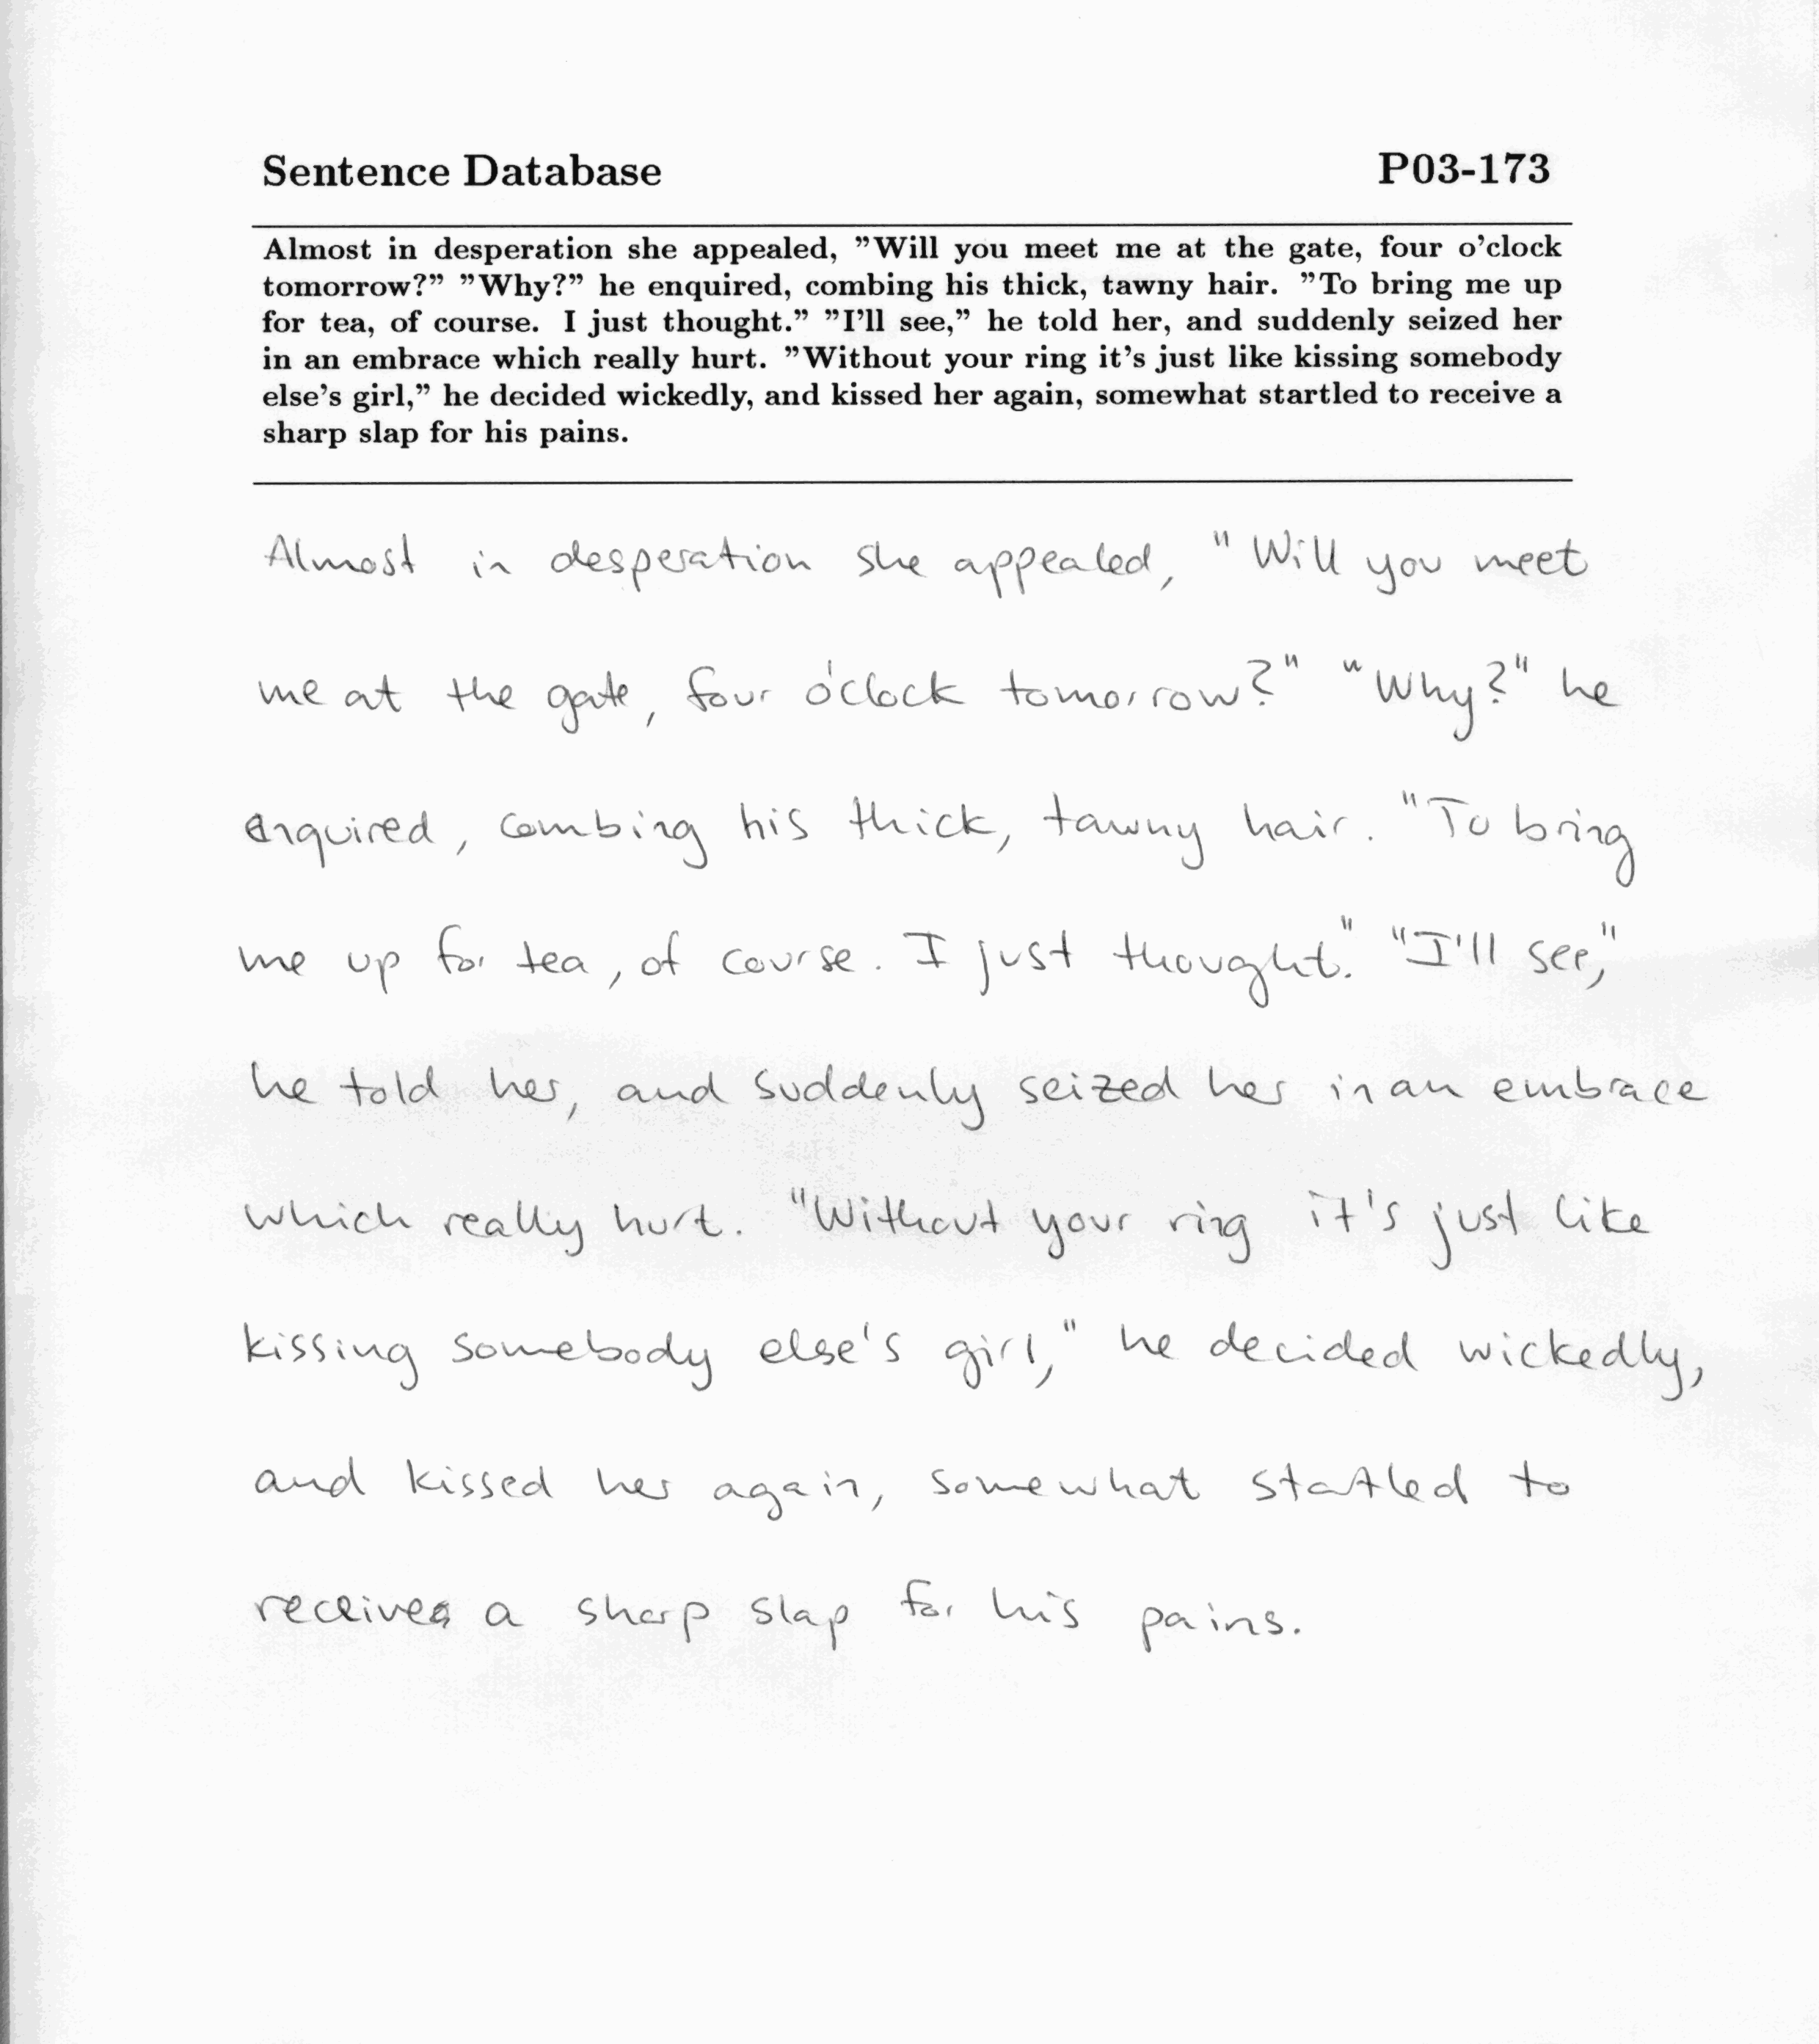 Sentence Database P03-173
Almost in desperation she appealed, ”Will you meet me at the gate, four o’clock
tomorrow?” ”Why?” he enquired, combing his thick, tawny hair. ”To bring me up
for tea, of course. I just thought.” ”I’ll see,” he told her, and suddenly seized her
in an embrace which really hurt. ”Without your ring it’s just like kissing somebody
else’s girl,” he decided wickedly, and kissed her again, somewhat startled to receive a
sharp slap for his pains.
Almost in desperation she appealed, "Will you meet
me at the gate, four o'clock tomorrow?" "Why?" he
enquired, combing his thick, tawny hair. "To bring
me up for tea, of course. I just thought." "I'll see,"
he told her, and suddenly seized her in an embrace
which really hurt. "Without your ring it's just like
kissing somebody else's girl," he decided wickedly,
and kissed her again, somewhat startled to
receive a sharp slap for his pains.